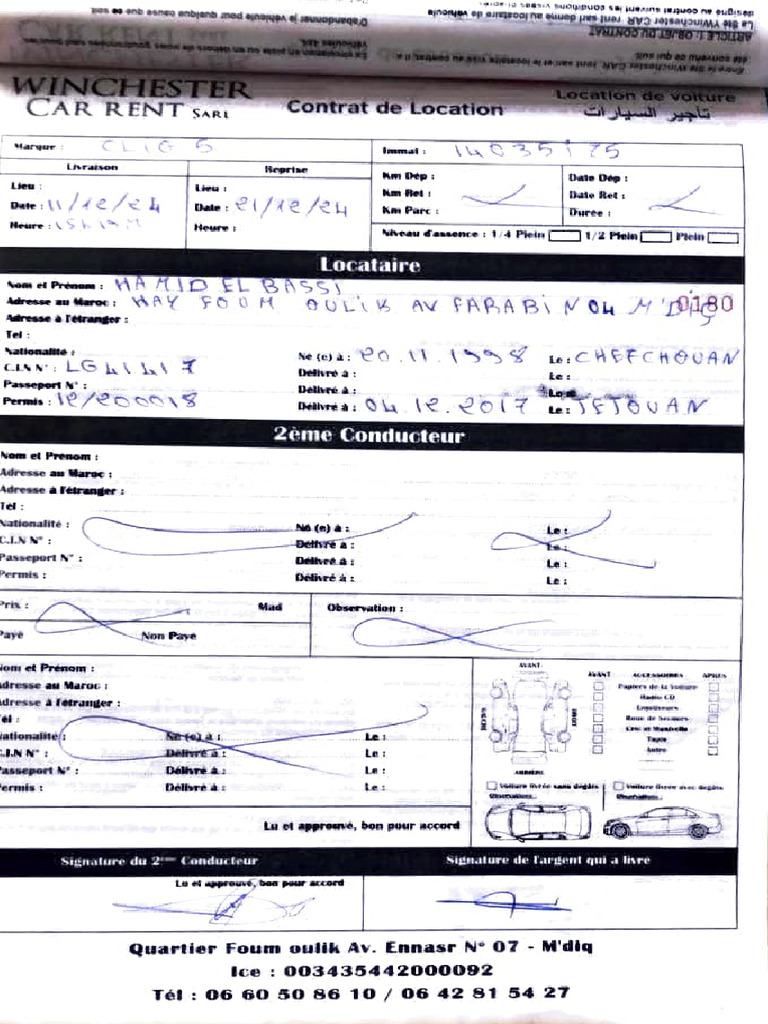 WINCHESTER
CAR RENT SARL
Contrat de Location
Location de voiture
تأجير السيارات
Marque : CLIO 5
Immat : 14035 I 75
Livraison
Reprise
Lieu :
Date : 11/12/24
Heure :
Lieu :
Date : 21/12/24
Heure :
Km Dép :
Km Ret :
Km Parc :
Date Dép :
Date Ret :
Durée :
Niveau d'assence : 1/4 Plein 1/2 Plein Plein
Locataire
Nom et Prénom : HAMID EL BASSI
Adresse au Maroc : HAY FOUM OULIK AV FARABI N 04 M'DIQ
0180
Adresse à l'étranger :
Tel :
Nationalité :
Né (e) à : 20.11.1998 Le : CHEFCHOUAN
C.I.N N° : LG41417 Délivré à : Le :
Passeport N° : Délivré à :
Permis : 12/200018 Délivré à : 04.12.2017 Le : TETOUAN
2ème Conducteur
Nom et Prénom :
Adresse au Maroc :
Adresse à l'étranger :
Tél :
Nationalité : Né (e) à : Le :
C.I.N N° : Délivré à : Le :
Passeport N° : Délivré à : Le :
Permis : Délivré à : Le :
Prix : Mad
Payé Non Payé
Observation :
Nom et Prénom :
Adresse au Maroc :
Adresse à l'étranger :
Tél :
Nationalité : Né (e) à : Le :
C.I.N N° : Délivré à : Le :
Passeport N° : Délivré à : Le :
Permis : Délivré à : Le :
Lu et approuvé, bon pour accord
AVANT
GAUCHE
DROIT
ARRIÈRE
AVANT ACCESSOIRES APRÈS
Papiers de la Voiture
Radio CD
Enjoliveurs
Roue de Secours
Cric et Manivelle
Tapis
Autre
Voiture livrée sans dégâts
Observations
Voiture livrée avec dégâts
Observations
Signature du 2ème Conducteur
Signature de l'argent qui a livre
Lu et approuvé, bon pour accord
Quartier Foum oulik Av. Ennasr N° 07 - M'diq
Ice : 003435442000092
Tél : 06 60 50 86 10 / 06 42 81 54 27